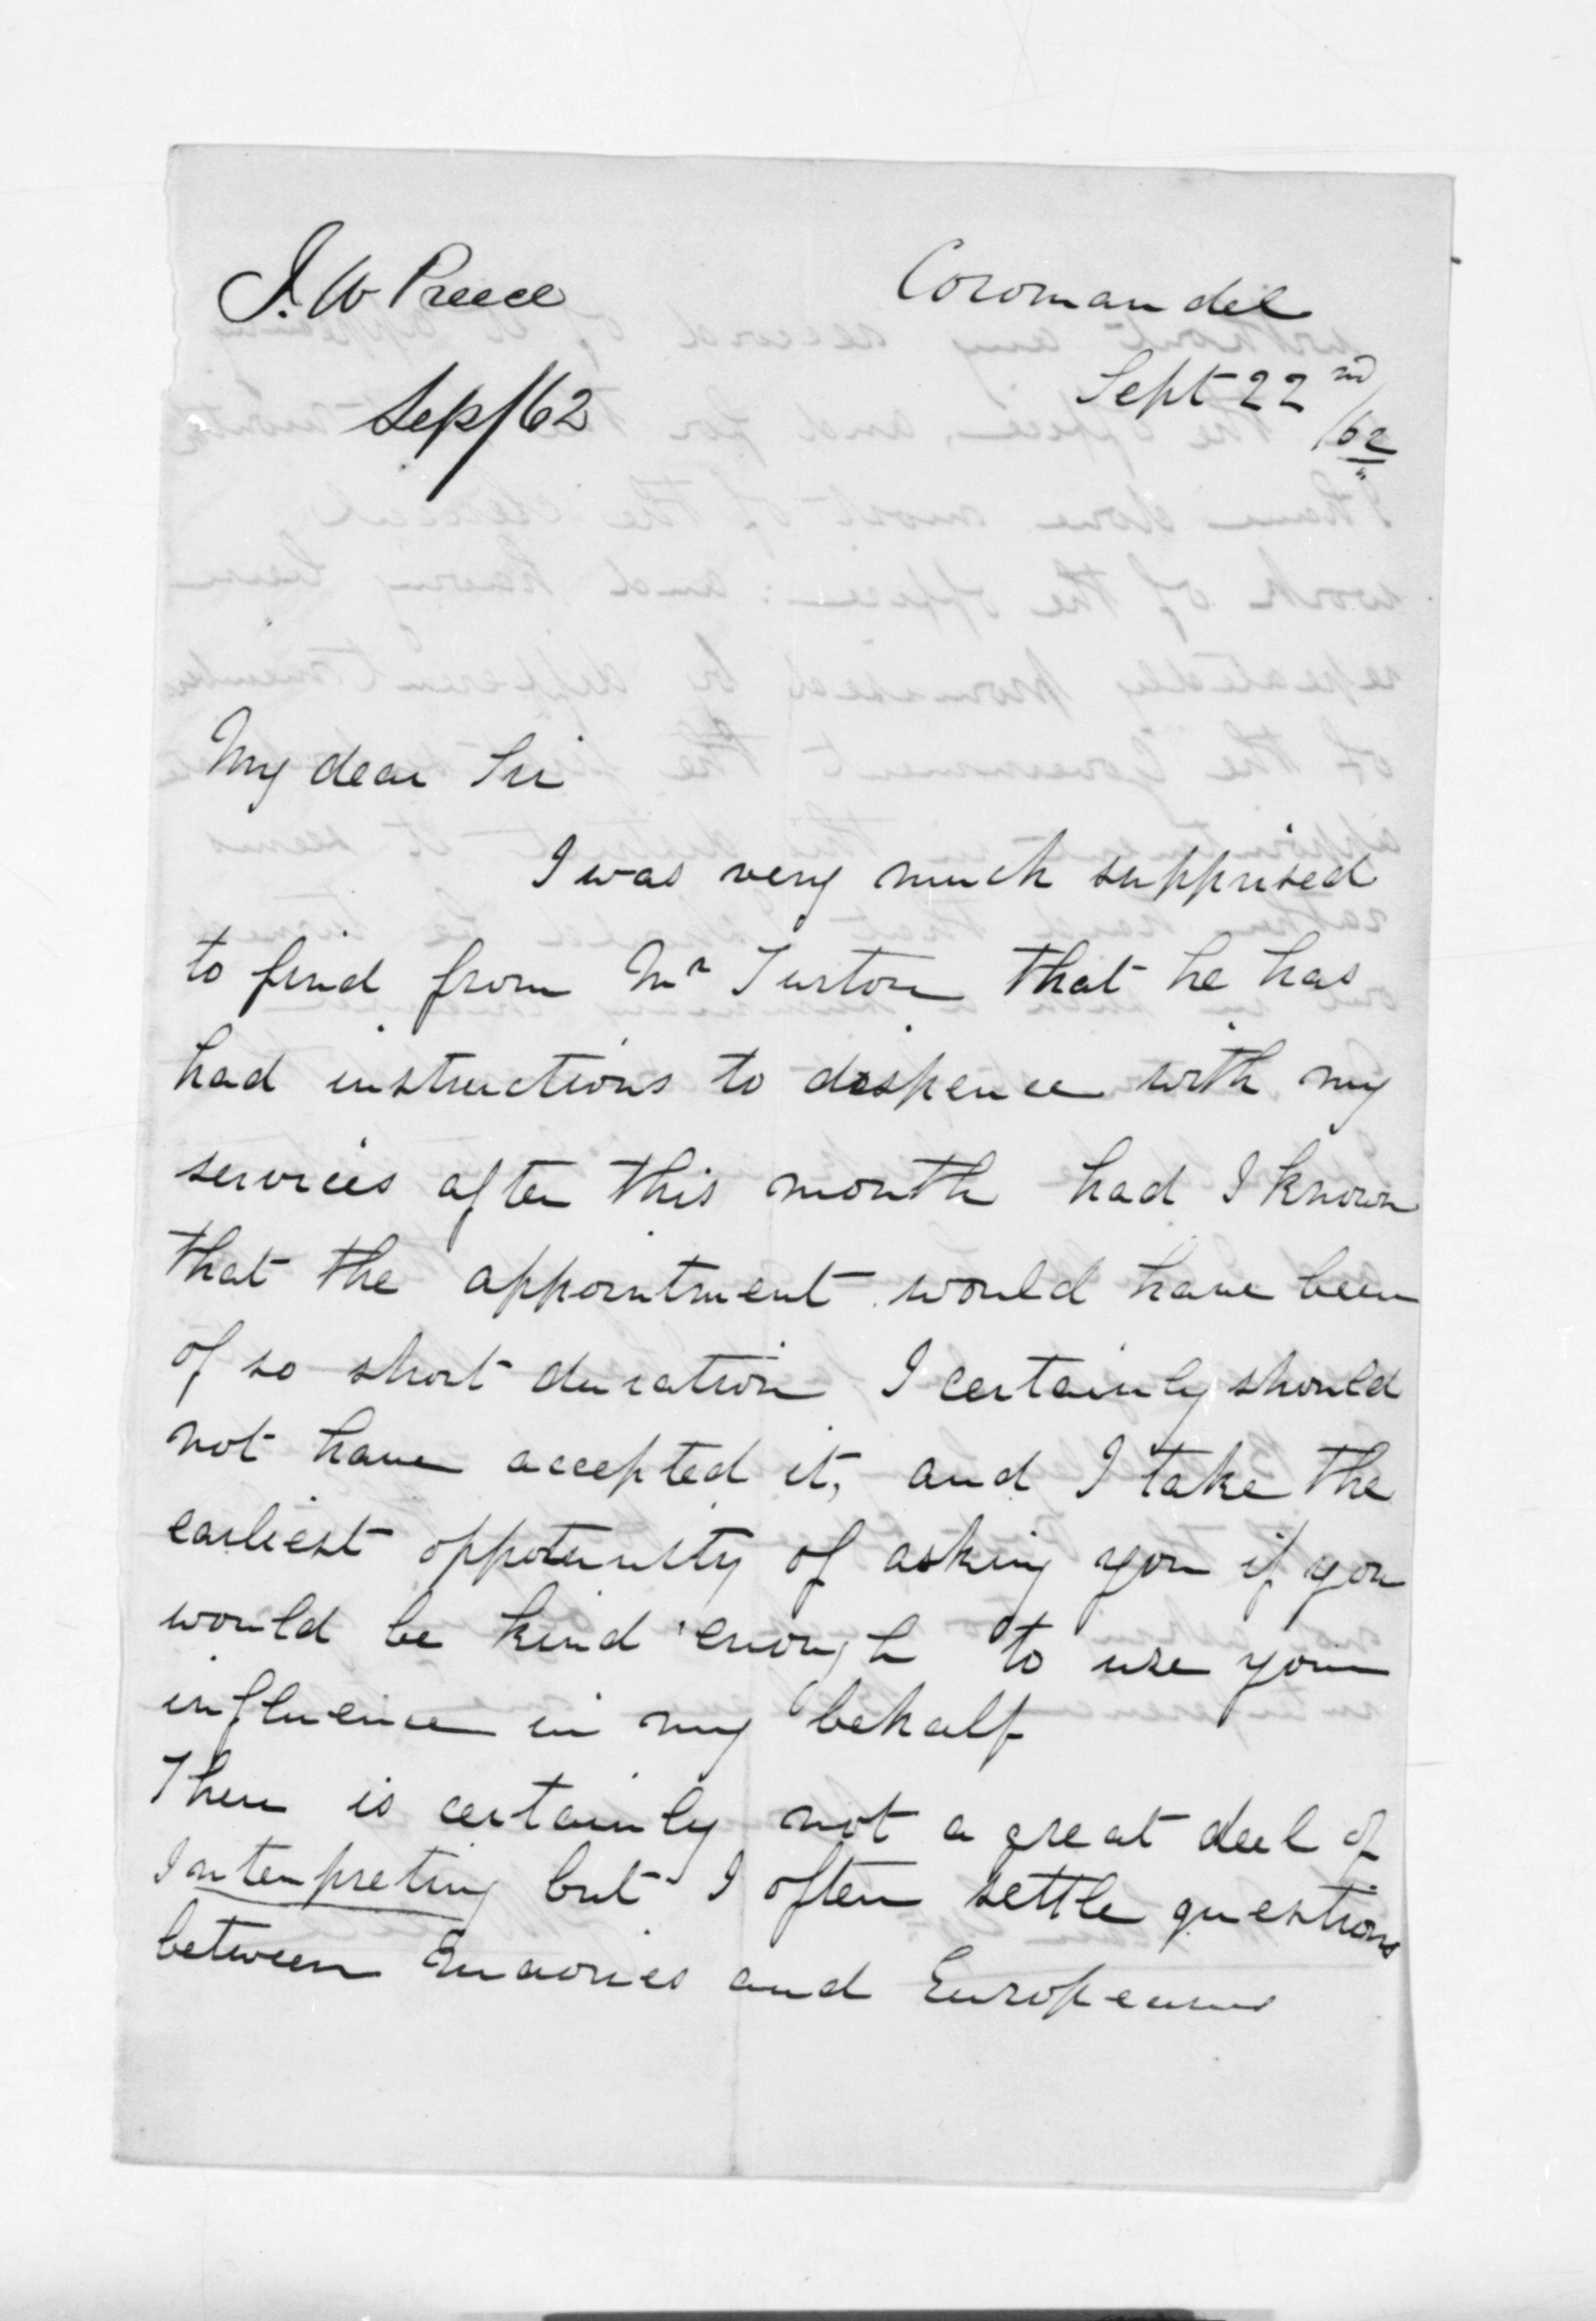 J. W Preece
Sep/62
Coromandel
Sept 22nd
/62
My dear Sir
I was very much supprised
to find from Mr Turton that he has
had instructions to dispence with my
services after this month had I known
that the appointment would have been
of so short duration I certainly should
not have accepted it, and I take the
earliest oppotunity of asking you if you
would be kind enough to use your
influence in my behalf
There is certainly not a great deel of
Interpreting but I often settle questions
between Maories and Europeans